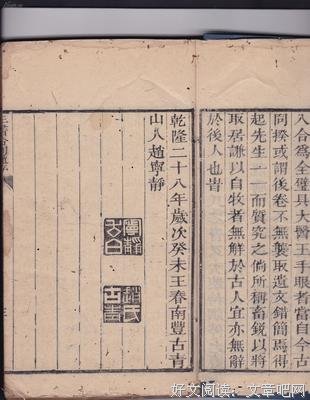 入合為全璧具大醫王手眼者當自今古
同揆或謂後卷不無襲取遺文錯簡焉得
起先生一一而質究之倘所稱畜銳以將
取居謙以自牧者無解於古人宜亦無辭
於後人也昔
乾隆二十八年歲次癸未王春南豐古青
山人趙寧靜
寧靜
趙氏
古畫
好文阅读:文章吧网